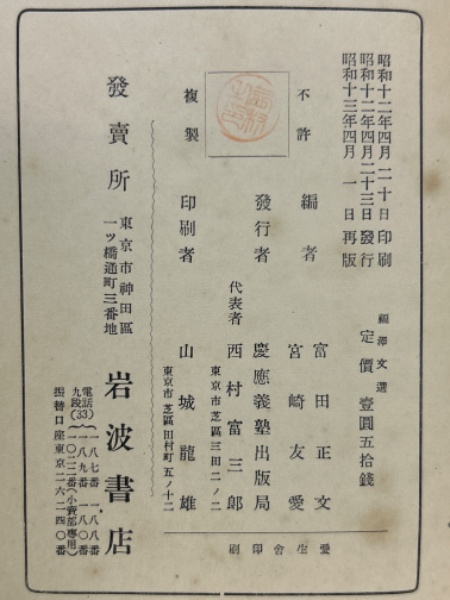 昭和十二年四月二十日印刷
昭和十二年四月二十三日發行
昭和十三年四月一日再版
福澤文選
定價壹圓五拾錢
不許
複製
編者
富田正文
宮崎友愛
發行者
慶應義塾出版局
代表者
西村富三郎
東京市芝區三田二ノ二
印刷者
山城龍雄
東京市芝區田村町五ノ十二
愛生舍印刷
發賣所
東京市神田區
一ツ橋通町三番地
岩波書店
電話
九段(33)
一八七番 一八八番
一八九番 一八〇番
一〇二二番(小賣部專用)
振替口座東京二六二四〇番